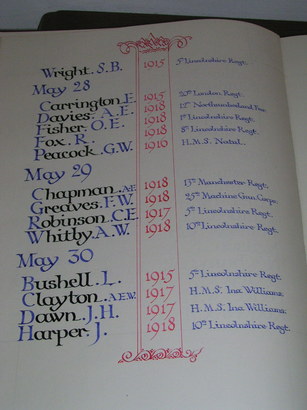 Wright. S.B. 1915 5th Lincolnshire Regt.
May 28
Carrington. E. 1915 20th London Regt.
Davies. A.E. 1918 12th Northumberland Fus.
Fisher. O.E. 1918 1st Lincolnshire Regt.
Fox. R. 1918 8th Lincolnshire Regt.
Peacock. G.W. 1916 H.M.S. Natal.
May 29
Chapman. 1918 13th Manchester Regt.
Greaves. F.W. 1918 25th Machine Gun Corps.
Robinson. C.E. 1917 5th Lincolnshire Regt.
Whitby. A.W. 1918 10th Lincolnshire Regt.
May 30
Bushell. L. 1915 5th Lincolnshire Regt.
Clayton. A.E.W. 1917 H.M.S. Ina Williams.
Dawn. J.H. 1917 H.M.S. Ina Williams.
Harper. J. 1918 10th Lincolnshire Regt.